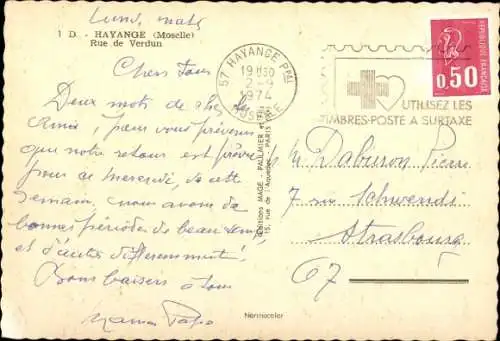 Lundi matin
1 D. - HAYANGE (Moselle)
Rue de Verdun
Chers Tous
Deux mots de chez les
Amis, pour vous prévenir
que notre retour est prévu
pour ce mercredi, de cette
semaine, nous avons de
bonnes périodes de beau temps,
et d'autres différemment!
Bons baisers à tous
Maman Papa
57 HAYANGE PPAL
19 H30
2-
1974
MOSELLE
UTILISEZ LES
TIMBRES-POSTE A SURTAXE
REPUBLIQUE FRANÇAISE
0,50
Editions MAGE - PAULMIER et
15, rue de l'Aqueduc - PARIS
Mr Daburon Pierre
7 rue Schwendi
Strasbourg
67